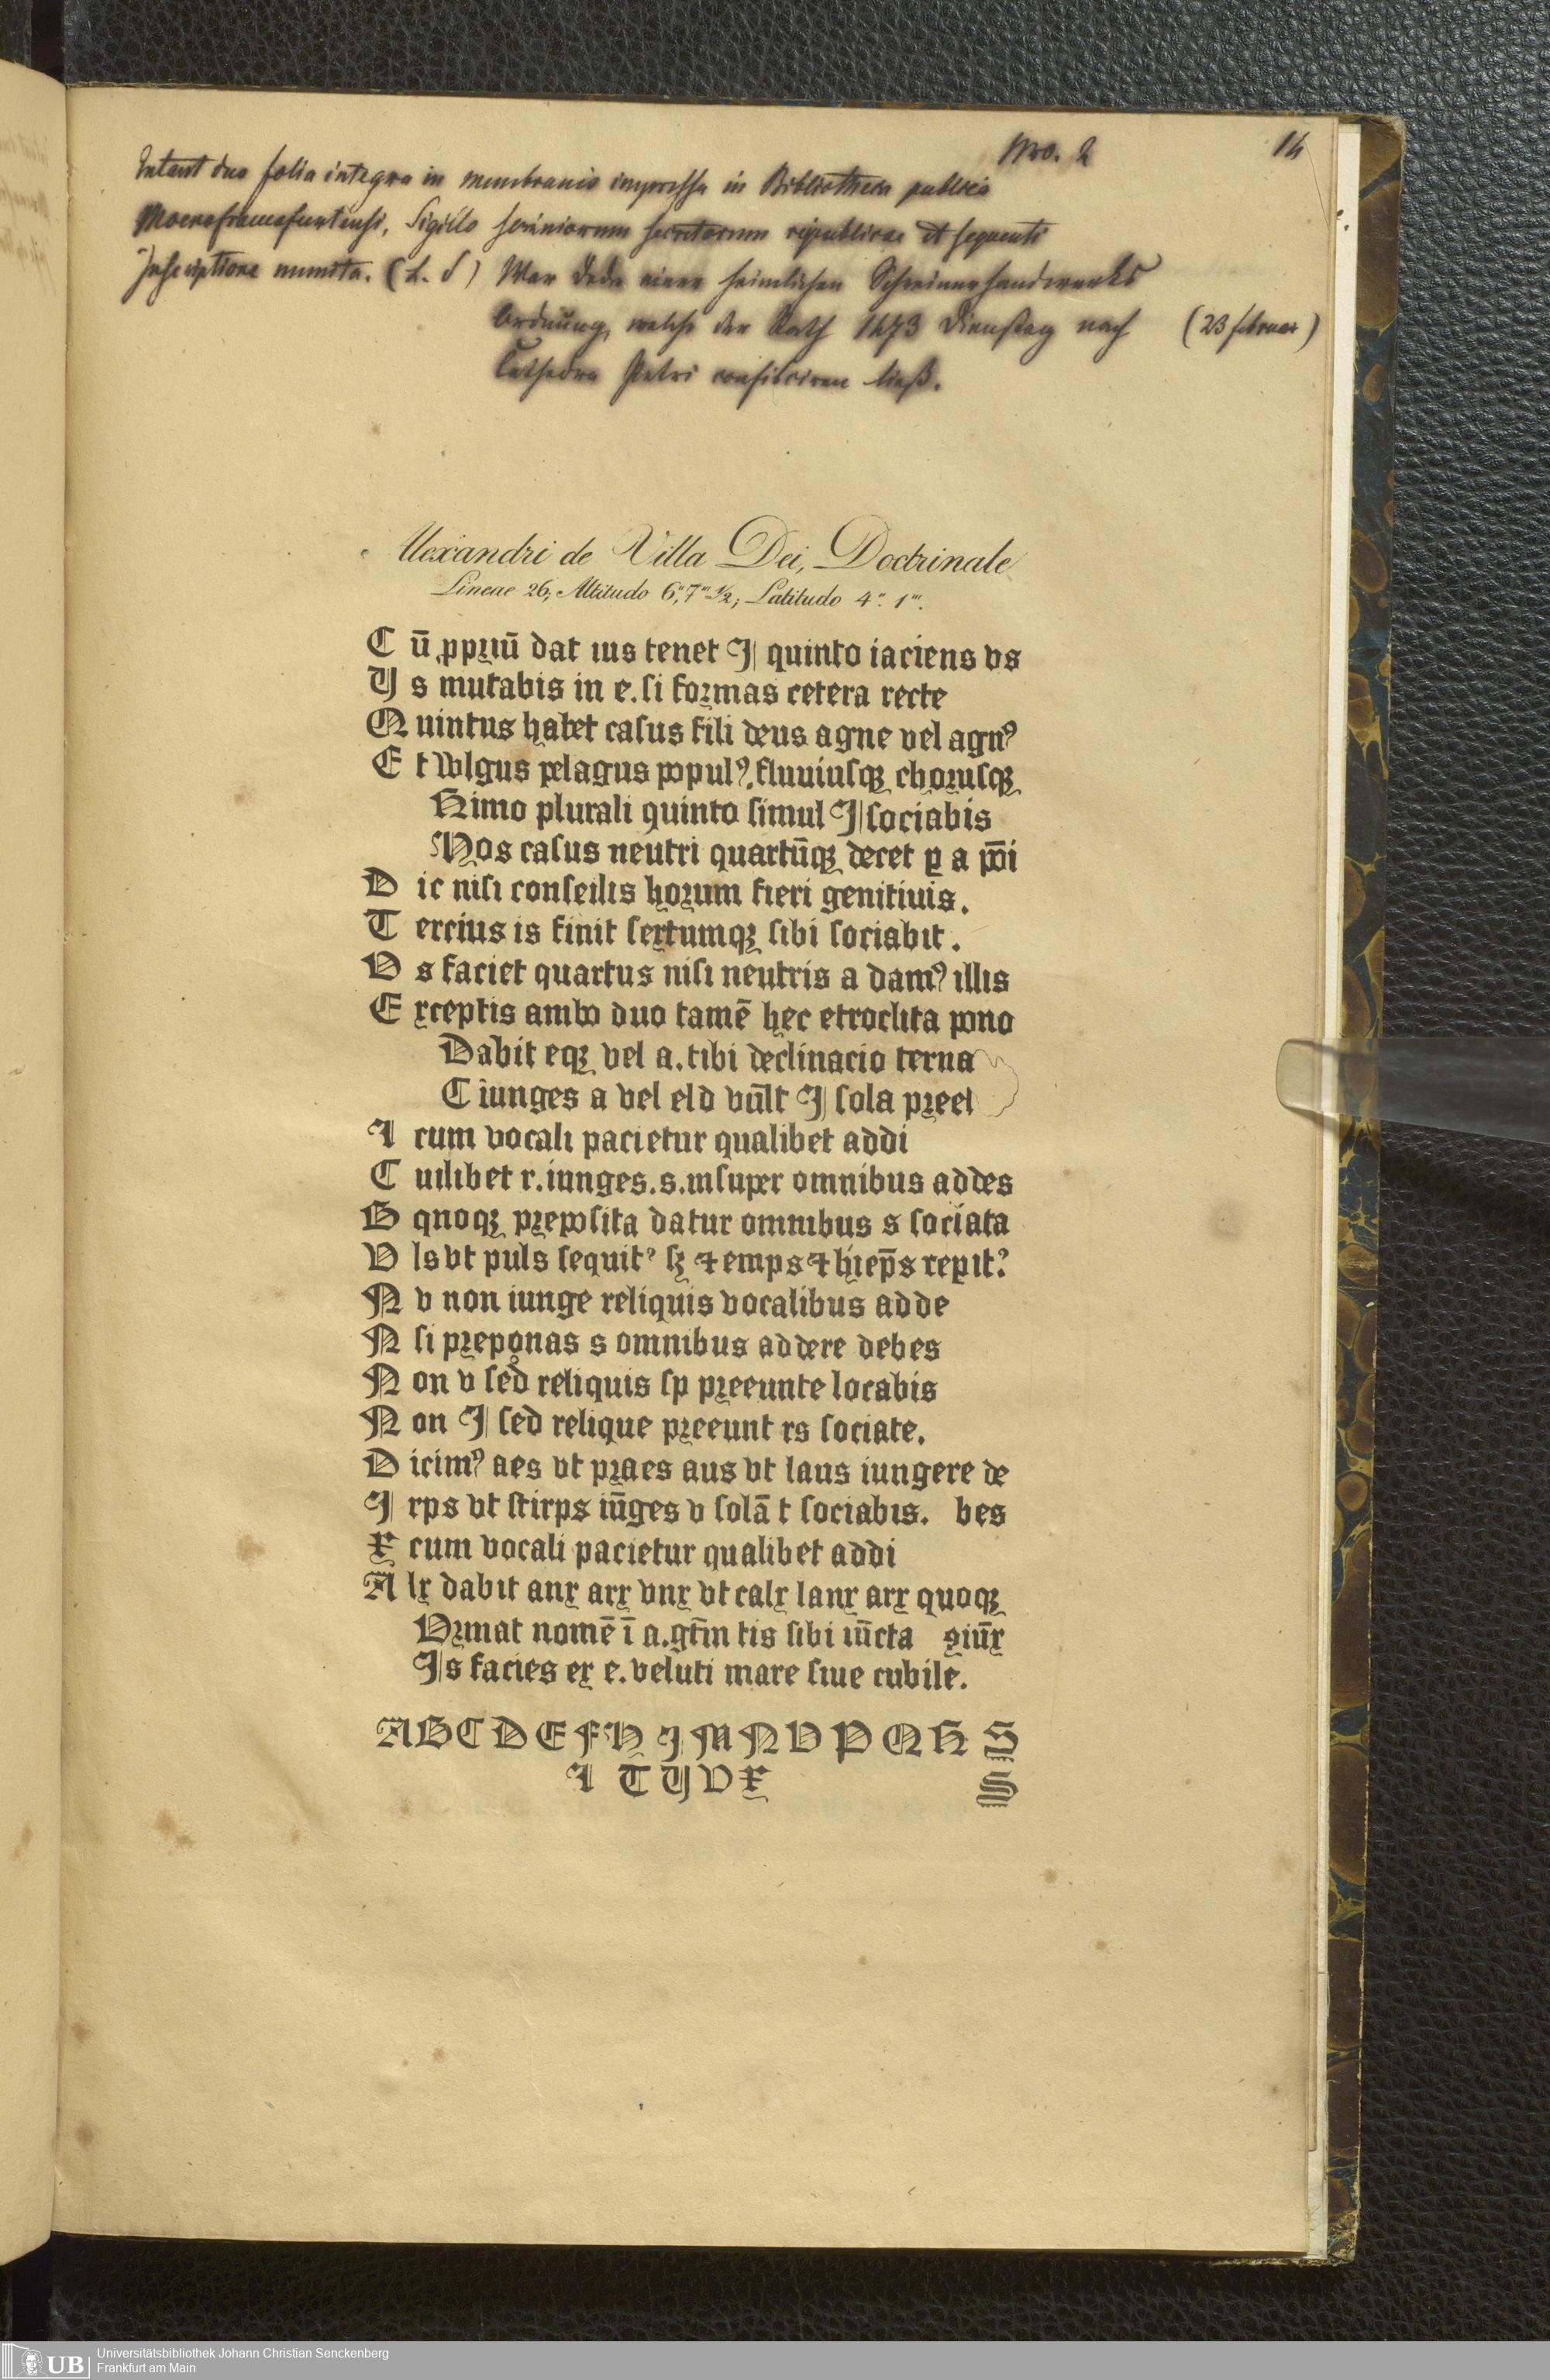 Nro. 2
14
Extant duo folia integra in membranis impressa in Bibliotheca publica
Moenofrancofurtensi, Sigillo scriniorum secretorum reipublicae et sequenti
Inscriptione munita. (L. S) War Decke einer heimlichen Schreinerhandwerks
Ordnung, welche der Rath 1473 Dienstag nach (23 februar)
Cathedra Petri confisciren ließ.
Alexandri de Villa Dei, Doctrinale
Lineae 26; Altitudo 6", 7'" ½; Latitudo 4". 1'".
C ū ꝓpꝛiū dat ius tenet I quinto iaciens vs
V s mutabis in e. ſi foꝛmas cetera recte
Q uintus habet caſus fili deus agne vel agnꝰ
E t wlgus pelagus populꝰ. fluuiuſqꝫ choꝛuſqꝫ
Rimo plurali quinto ſimul I ſociabis
Hos caſus neutri quartūqꝫ decet ꝑ a pōi
D ic niſi conſeilis hoꝛum fieri genitiuis.
T ercius is finit ſextumqꝫ ſibi ſociabit.
O s faciet quartus niſi neutris a damꝰ illis
E xceptis ambo duo tamē hec etroclita pono
Dabit eqꝫ vel a. tibi declinacio terna
C iunges a vel el d vūlt I ſola pꝛeel
I cum vocali pacietur qualibet addi
C uilibet r. iunges. s. inſuper omnibus addes
B quoqꝫ pꝛepoſita datur omnibus s ſociata
V ls vt puls ſequitꝰ ſꝫ ⁊ emps ⁊ hiep̄s reꝑitꝰ
N v non iunge reliquis vocalibus adde
N ſi pꝛeponas s omnibus addere debes
N on v ſed reliquis ſp pꝛeeunte locabis
N on I ſed relique pꝛeeunt rs ſociate.
D icimꝰ aes vt pꝛaes aus vt laus iungere de
I rps vt ſtirps iūges v ſolā t ſociabis. bes
X cum vocali pacietur qualibet addi
A lx dabit anx arx vnx vt calx lanx arx quoqꝫ
Oꝛmat nomē ī a. gtm̄ tis ſibi iūcta ꝯiūx
Is facies ex e. veluti mare ſiue cubile.
A B C D E F H I M N O P Q R S
I T V V X S
UB Universitätsbibliothek Johann Christian Senckenberg
Frankfurt am Main